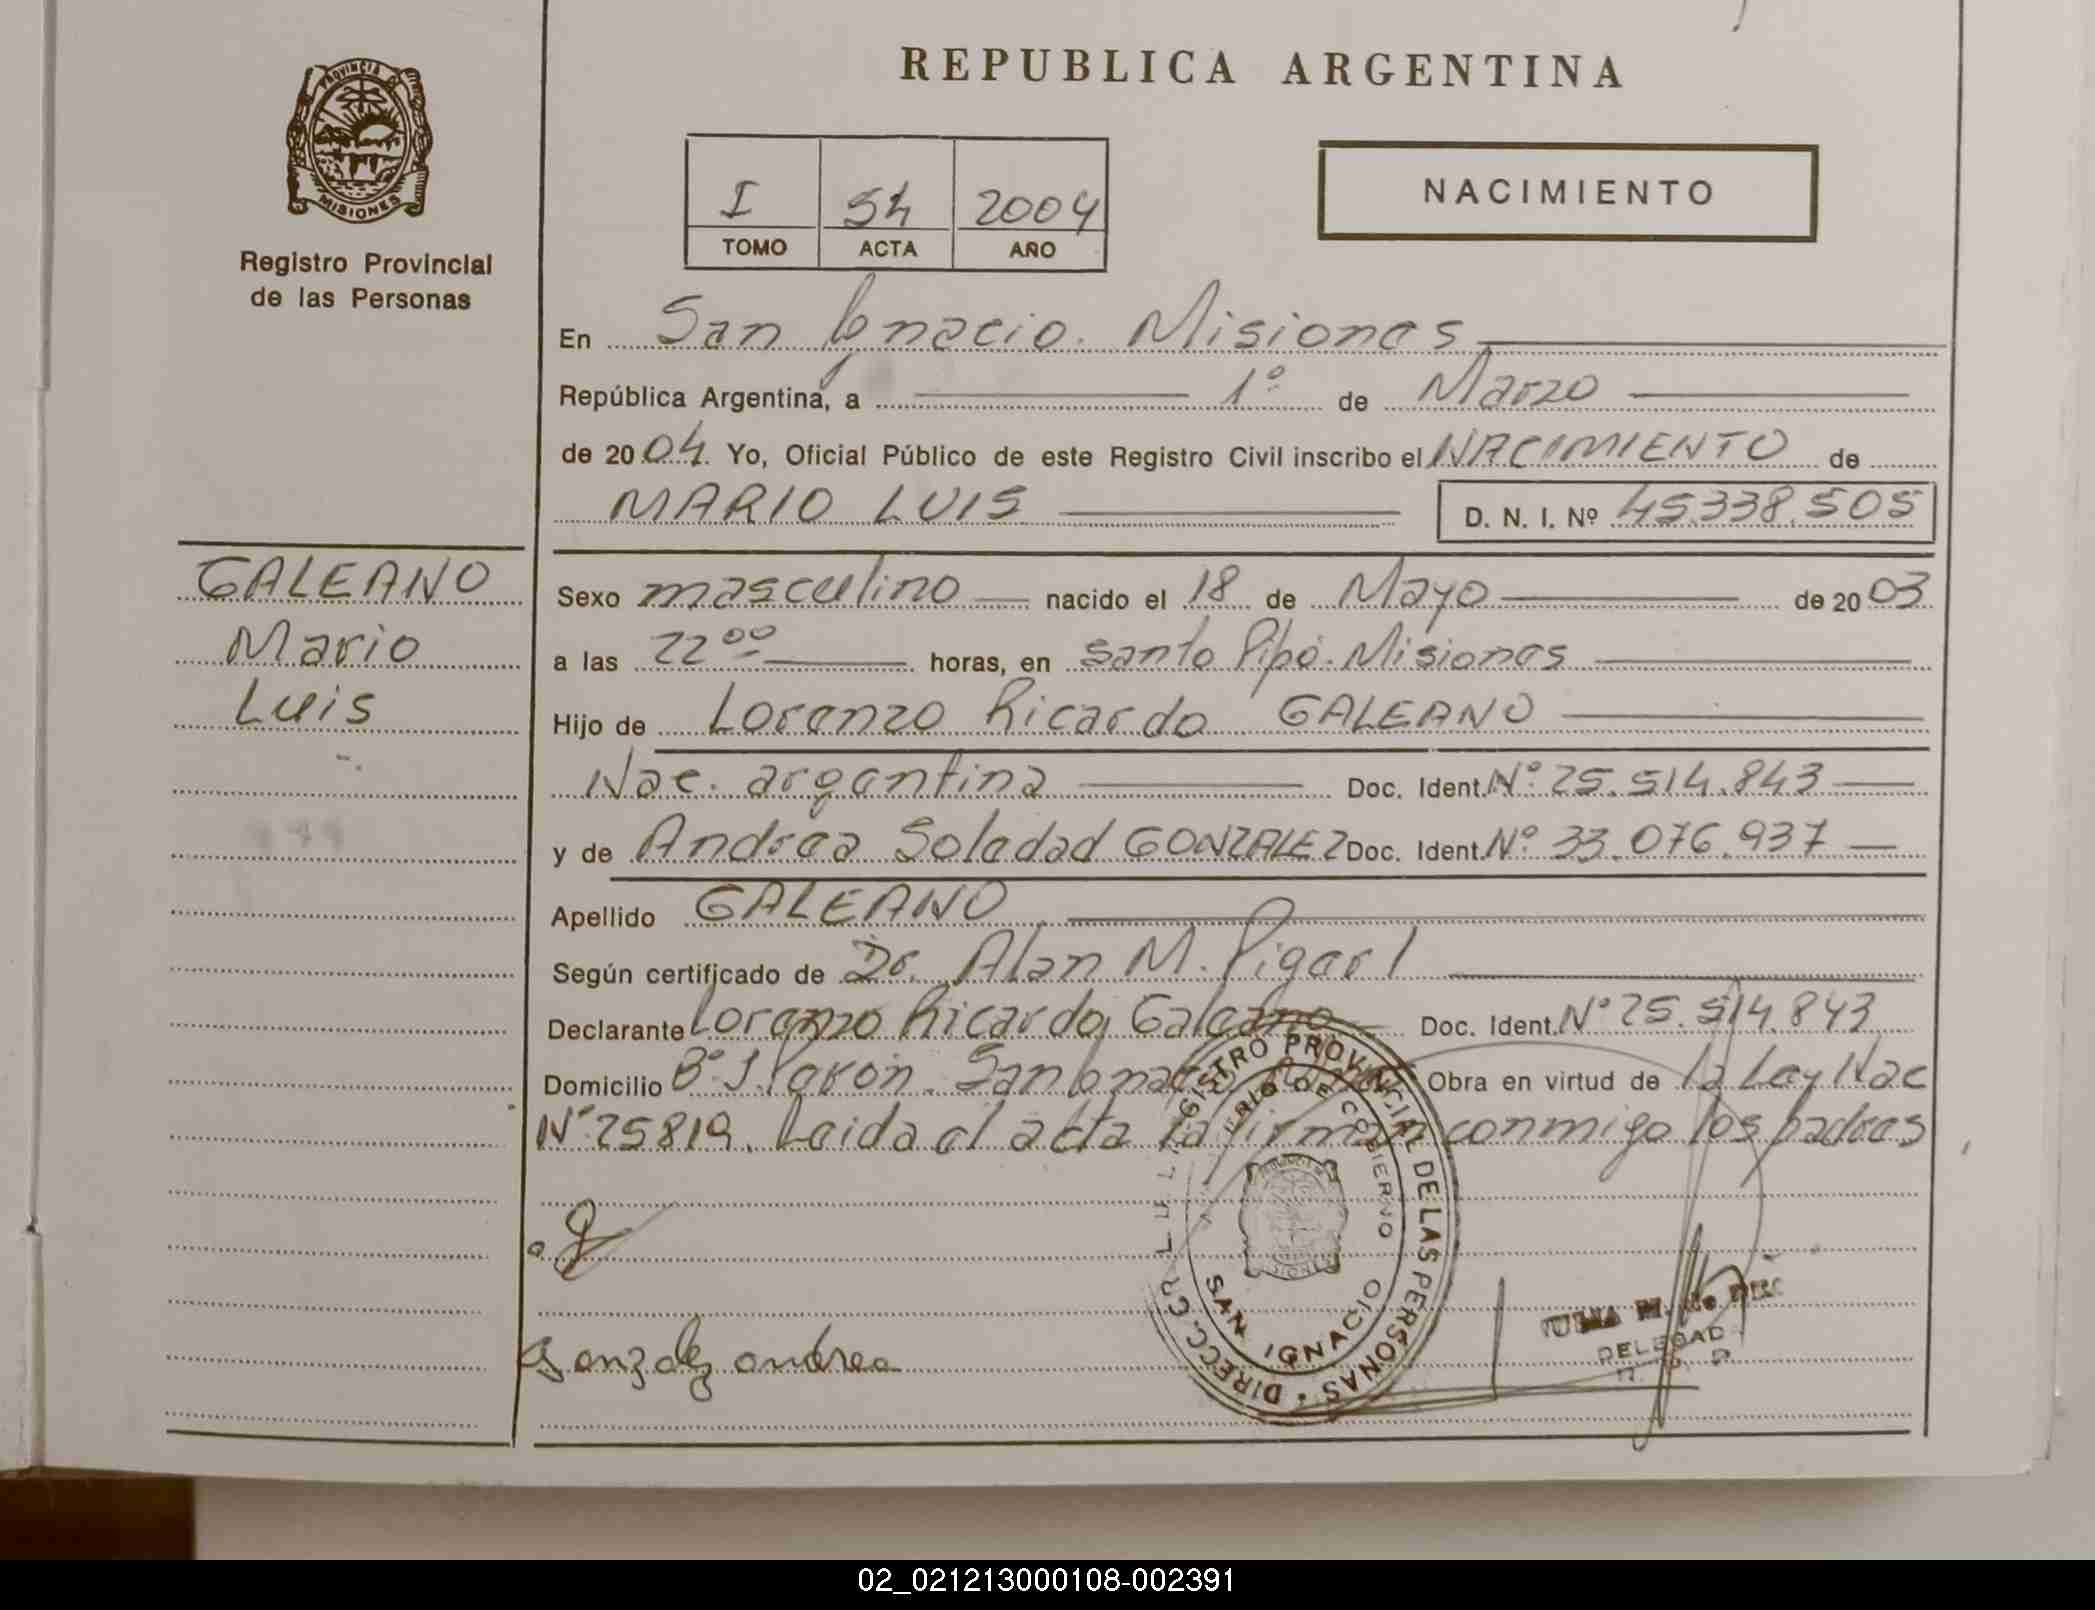 REPUBLICA ARGENTINA
PROVINCIA DE
MISIONES
Registro Provincial
de las Personas
I 54 2004
TOMO ACTA AÑO
NACIMIENTO
En San Ignacio. Misiones
República Argentina, a 1º de Marzo
de 2004. Yo, Oficial Público de este Registro Civil inscribo el NACIMIENTO de
MARIO LUIS D. N. I. Nº 45.338.505
GALEANO
Mario
Luis
Sexo masculino nacido el 18 de Mayo de 2003
a las 22⁰⁰ horas, en Santo Pipó. Misiones
Hijo de Lorenzo Ricardo GALEANO
Nac. argentina Doc. Ident. Nº 25.514.843
y de Andrea Soledad GONZALEZ Doc. Ident. Nº 33.076.937
Apellido GALEANO
Según certificado de Dr. Alan M.
Declarante Lorenzo Ricardo Galeano Doc. Ident. Nº 25.514.843
Domicilio Bº San Ignacio Obra en virtud de la Ley Nac
Nº 25819. Leida el acta la firman conmigo los padres
REGISTRO PROVINCIAL DE LAS PERSONAS
DE GOBIERNO
SAN IGNACIO
Gonzalez andrea
DELEGAD
02_021213000108-002391